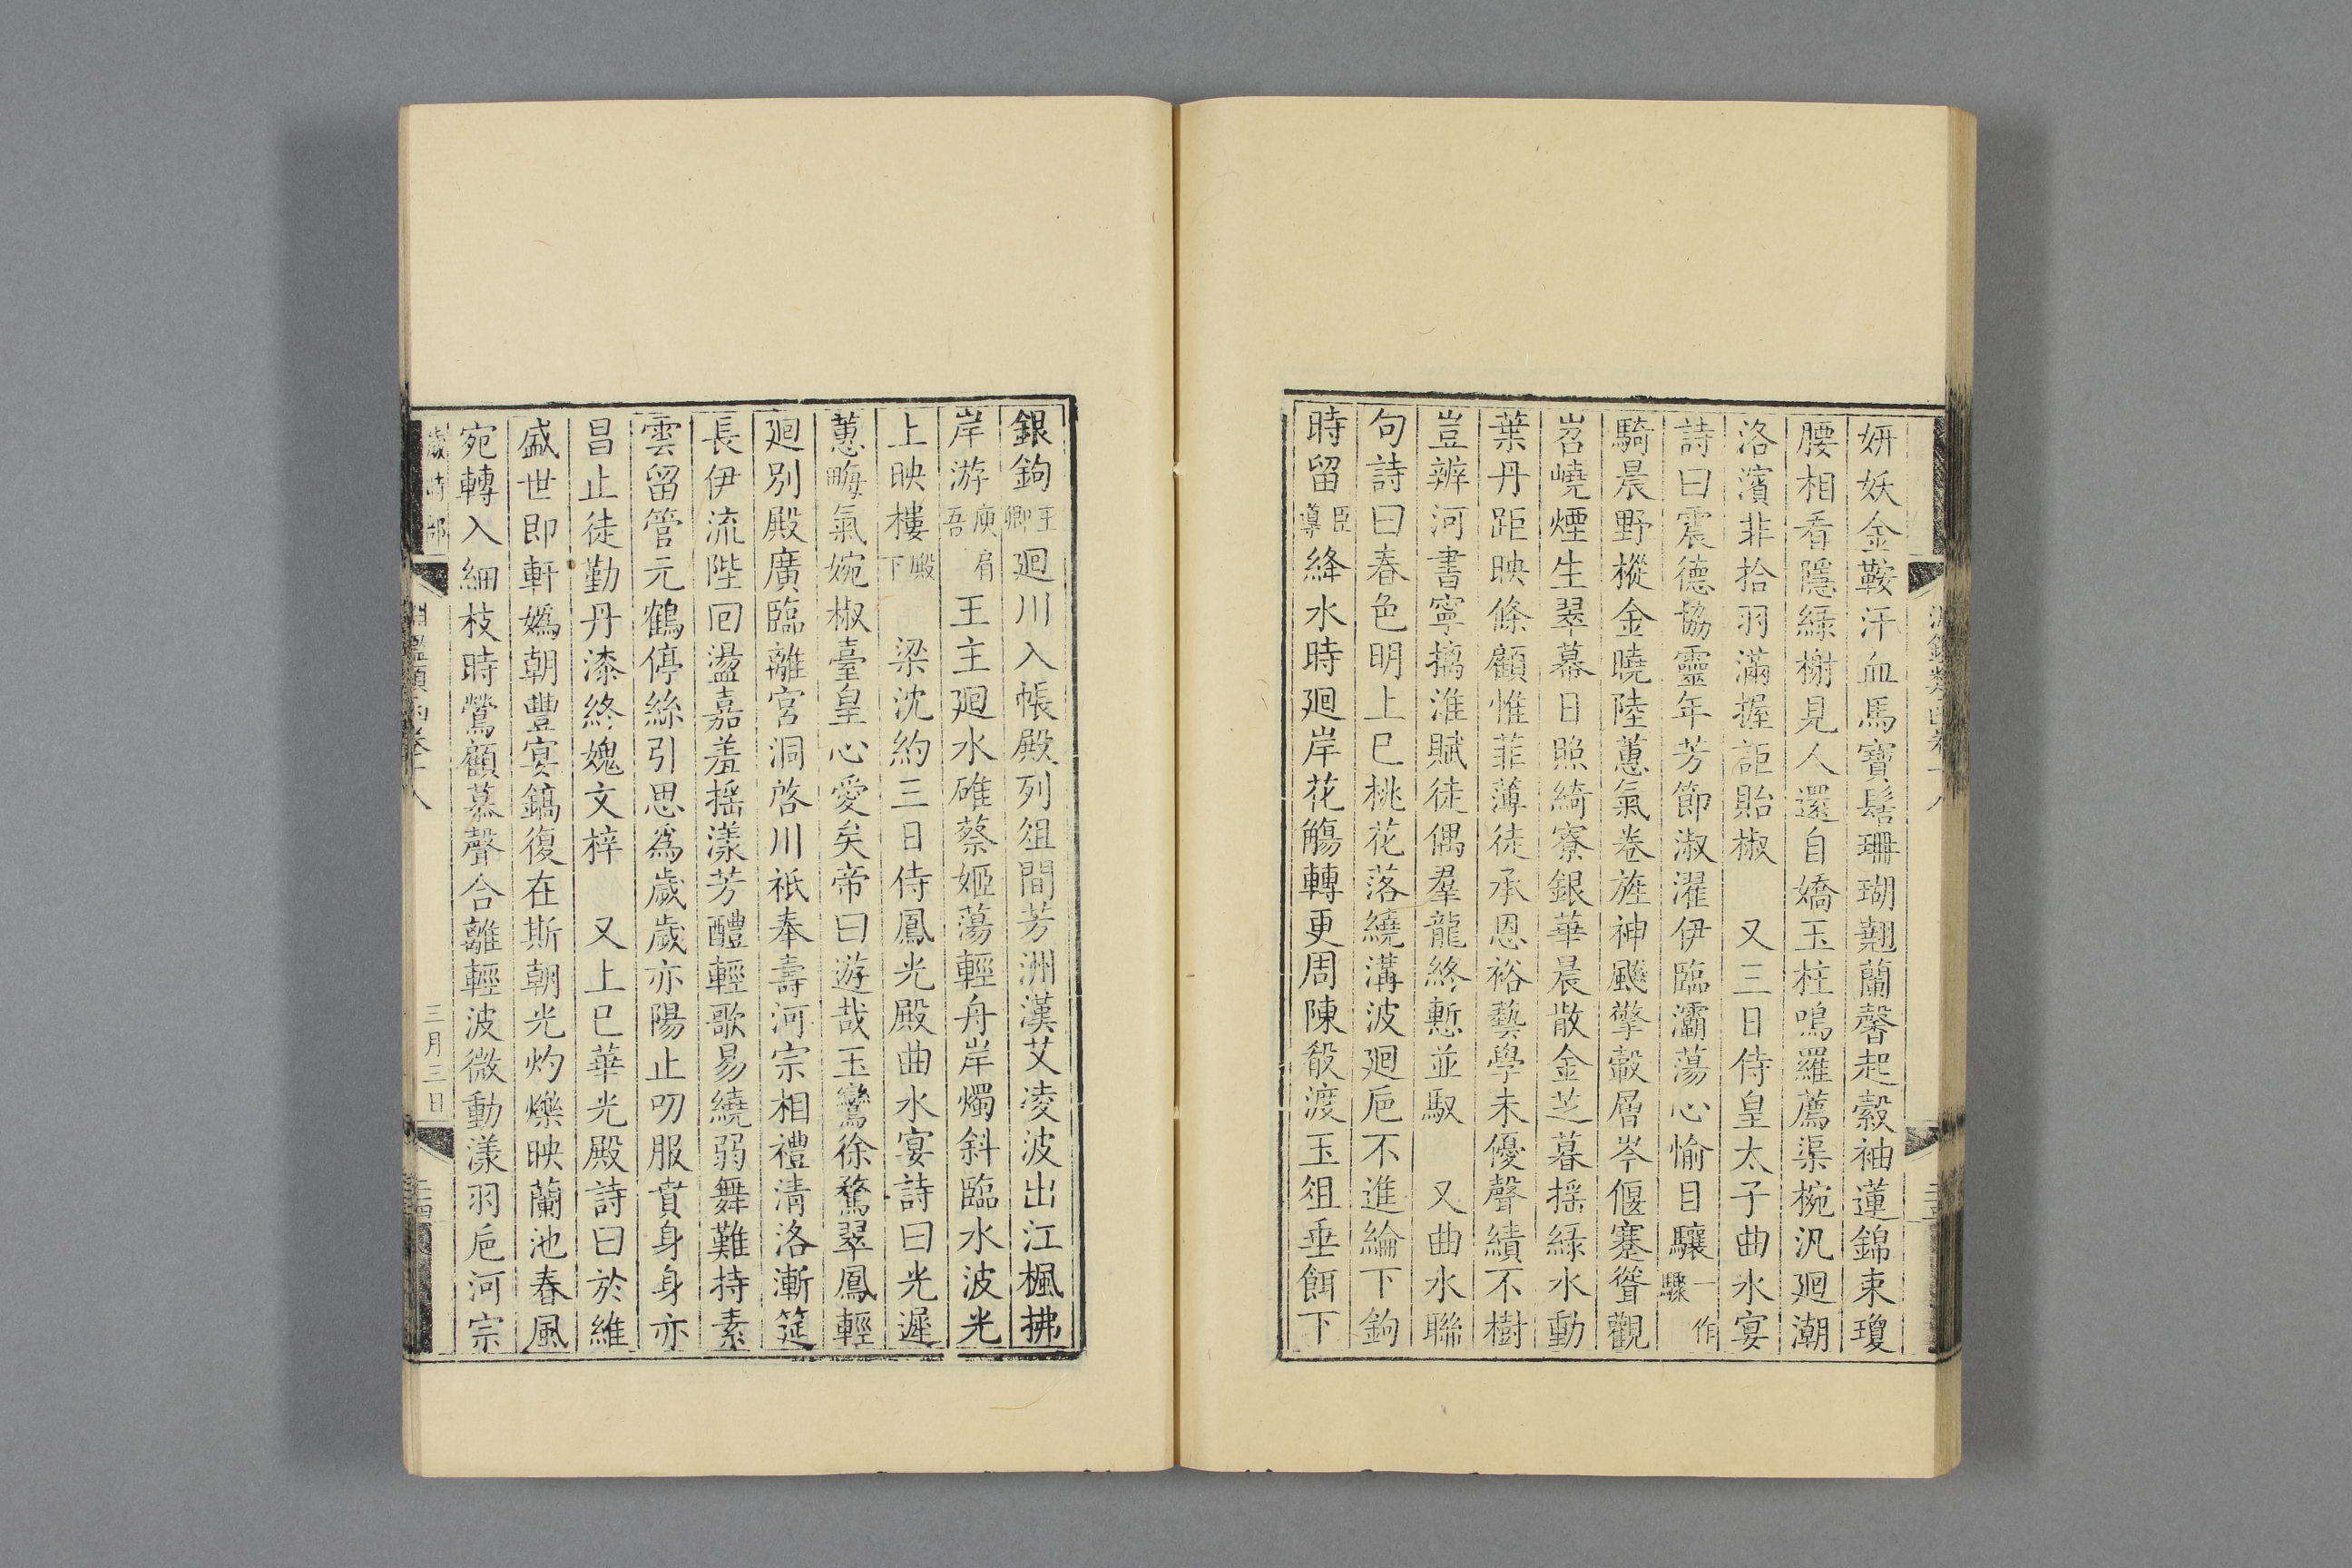 妍妖金鞍汗血馬寶髻珊瑚翹蘭馨起縠袖蓮錦束瓊
腰相看隱綠樹見人還自嬌玉柱鳴羅薦渠椀汎廻潮
洛濱非拾羽滿握詎貽椒　又三日侍皇太子曲水宴
詩曰震德協靈年芳節淑濯伊臨灞蕩心愉目驤一作驟
騎晨野摐金曉陸蕙氣卷旌神飈擎轂層岑偃蹇聳觀
岧嶢煙生翠幕日照綺寮銀華晨散金芝暮摇綠水動
葉丹距映條顧惟菲薄徒承恩裕藝學未優聲績不樹
豈辨河書寧摛淮賦徒偶羣龍終慙並馭　又曲水聯
句詩曰春色明上巳桃花落繞溝波廻巵不進綸下鉤
時留臣導絳水時廻岸花觴轉更周陳殽渡玉俎垂餌下
銀鉤王卿廻川入帳殿列俎間芳洲漢艾凌波出江楓拂
岸游庾肩吾王主廻水碓蔡姬蕩輕舟岸燭斜臨水波光
上映樓殿下　梁沈約三日侍鳳光殿曲水宴詩曰光遲
蕙畮氣婉椒臺皇心愛矣帝曰遊哉玉鸞徐騖翠鳳輕
廻別殿廣臨離宮洞啓川祗奉壽河宗相禮清洛漸筵
長伊流陛回盪嘉羞摇漾芳醴輕歌易繞弱舞難持素
雲留管元鶴停絲引思爲歲歲亦陽止叨服賁身身亦
昌止徒勤丹漆終媿文梓　又上巳華光殿詩曰於維
盛世即軒媯朝豐宴鎬復在斯朝光灼爍映蘭池春風
宛轉入細枝時鶯顧慕聲合離輕波微動漾羽巵河宗
歲時部　淵鑑類函卷十八　三月三日